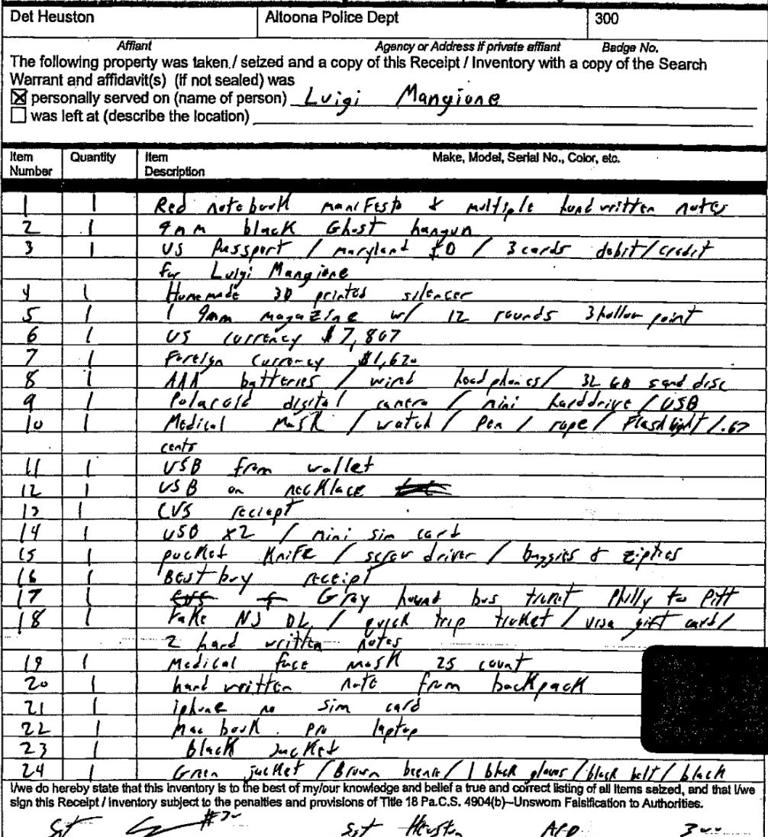 Det Heuston Altoona Police Dept 300
Affiant Agency or Address if private affiant Badge No.
The following property was taken / seized and a copy of this Receipt / Inventory with a copy of the Search
Warrant and affidavit(s) (if not sealed) was
☒ personally served on (name of person) Luigi Mangione
☐ was left at (describe the location)
Item Number Quantity Item Description Make, Model, Serial No., Color, etc.
1 1 Red notebook manifesto & multiple handwritten notes
2 1 9mm black Ghost hangun
3 1 US Passport / maryland ID / 3 cards debit/credit
for Luigi Mangione
4 1 Homemade 3D printed silencer
5 1 1 9mm magazine w/ 12 rounds 3 hollow point
6 1 US currency $7,807
7 1 Foreign Currency $1,620
8 1 AAA batteries / wired headphones / 32 GB sand disc
9 1 Polaroid digital camera / mini harddrive / USB
10 1 Medical Mask / watch / Pen / rope / Flashlight / .67
cents
11 1 USB from wallet
12 1 USB on necklace
13 1 CVS reciept
14 1 USB x2 / mini sim card
15 1 pocket Knife / screw driver / baggies & zipties
16 1 Best buy receipt
17 1 Gray hound bus ticket Philly to Pitt
18 1 Fake NJ DL / quick trip ticket / visa gift card /
2 hard written notes
19 1 Medical face mask 25 count
20 1 hard written note from backpack
21 1 iphone no sim card
22 1 Mac book pro laptop
23 1 black Jacket
24 1 Green jacket / Brown beenie / 1 black gloves / black belt / black
I/we do hereby state that this inventory is to the best of my/our knowledge and belief a true and correct listing of all items seized, and that I/we
sign this Receipt / inventory subject to the penalties and provisions of Title 18 Pa.C.S. 4904(b)–Unsworn Falsification to Authorities.
Sgt Heuston APD 300